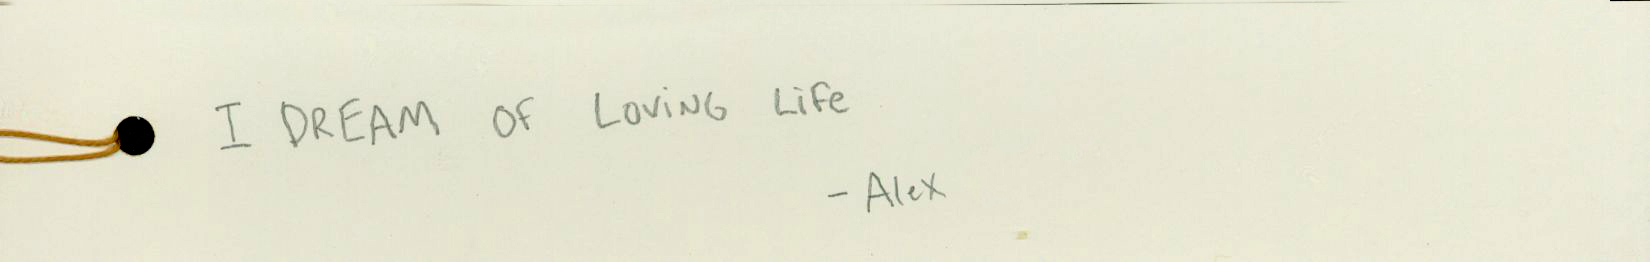 I DREAM OF LOViNG LiFe
- Alex